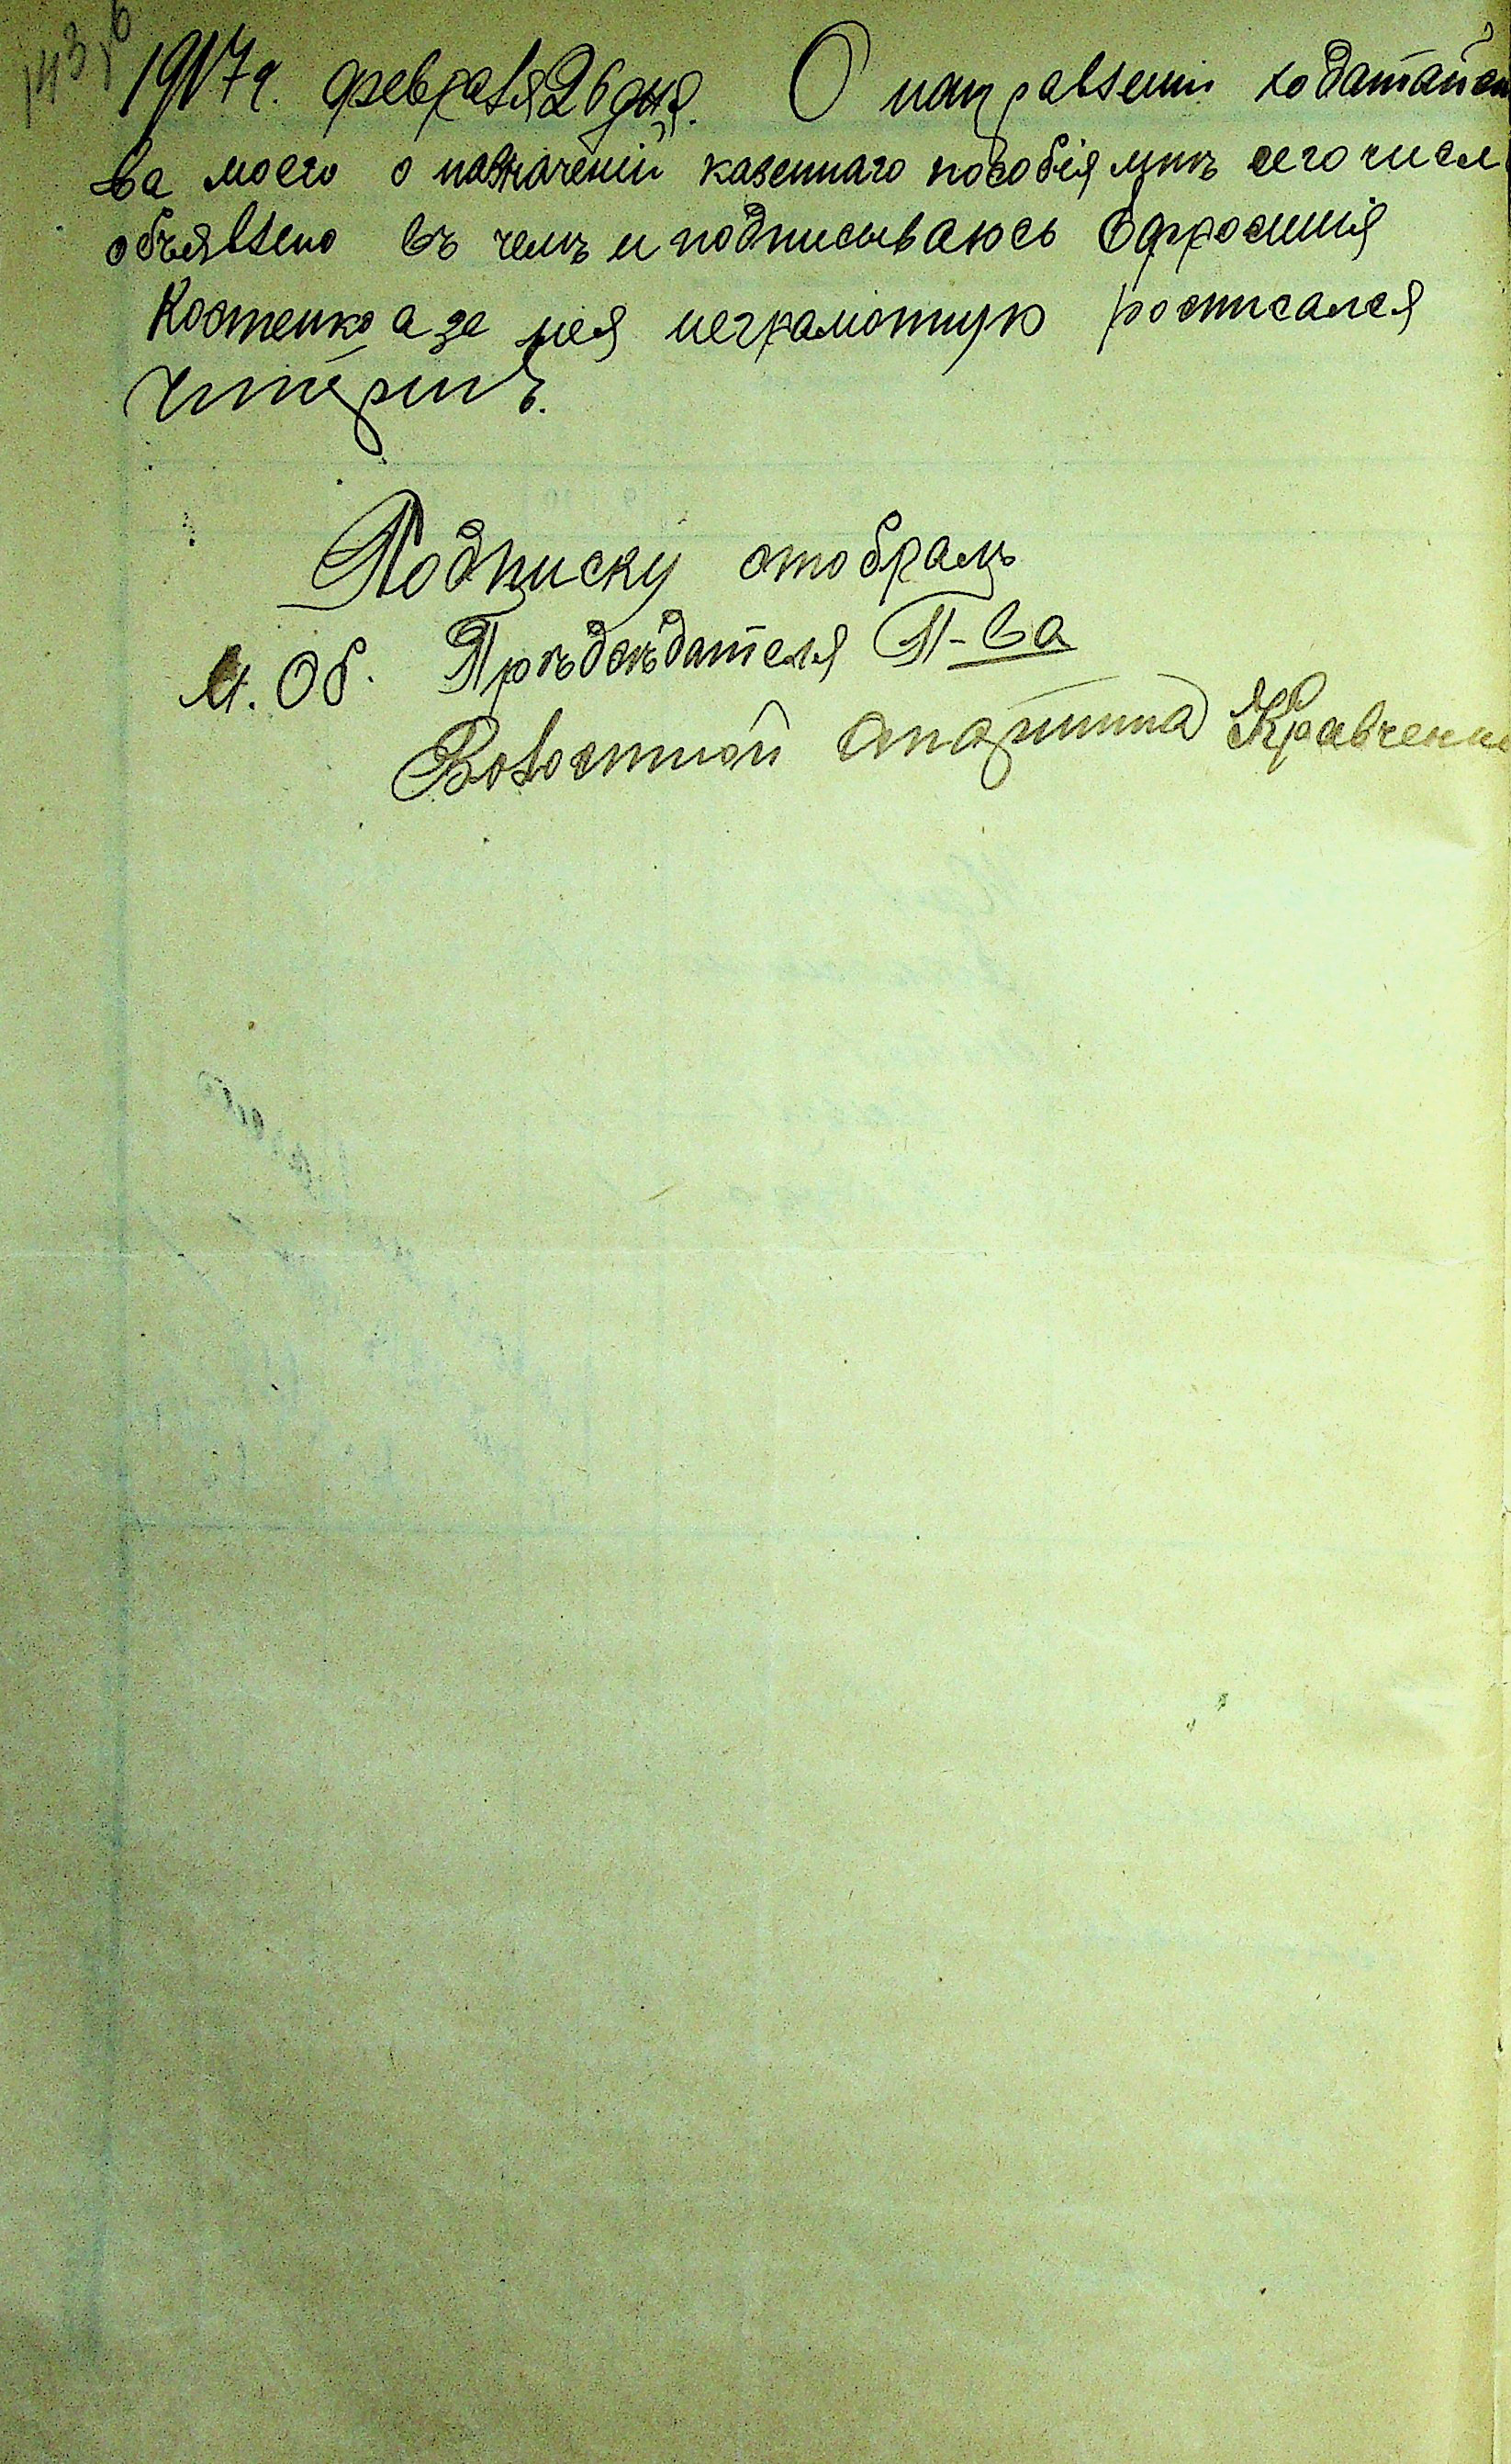 143об
1917 г. февраля 26 дня. О направлении ходатайст
ва моего о назначеніи казеннаго пособія мнѣ сего числ
объявлено въ чемъ и подписываюсь Ефросинія
Костенко а за нея неграмотную росписался
Подписку отобралъ
И. Об. Прѣдсѣдателя П-ва
Волостной старшина Кравченко